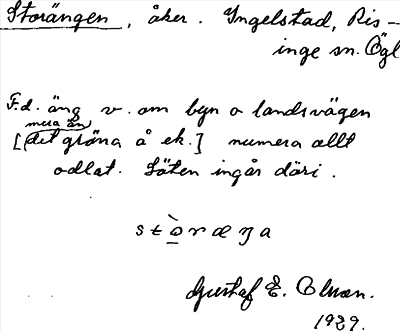 Storängen, åker. Ingelstad, Ris-
inge sn. Ögl
F.d. äng v. om byn o landsvägen
mera än
[det gröna å ek.] numera allt
odlat. Säten ingår däri.
Gustaf E. Olsson.
1929.